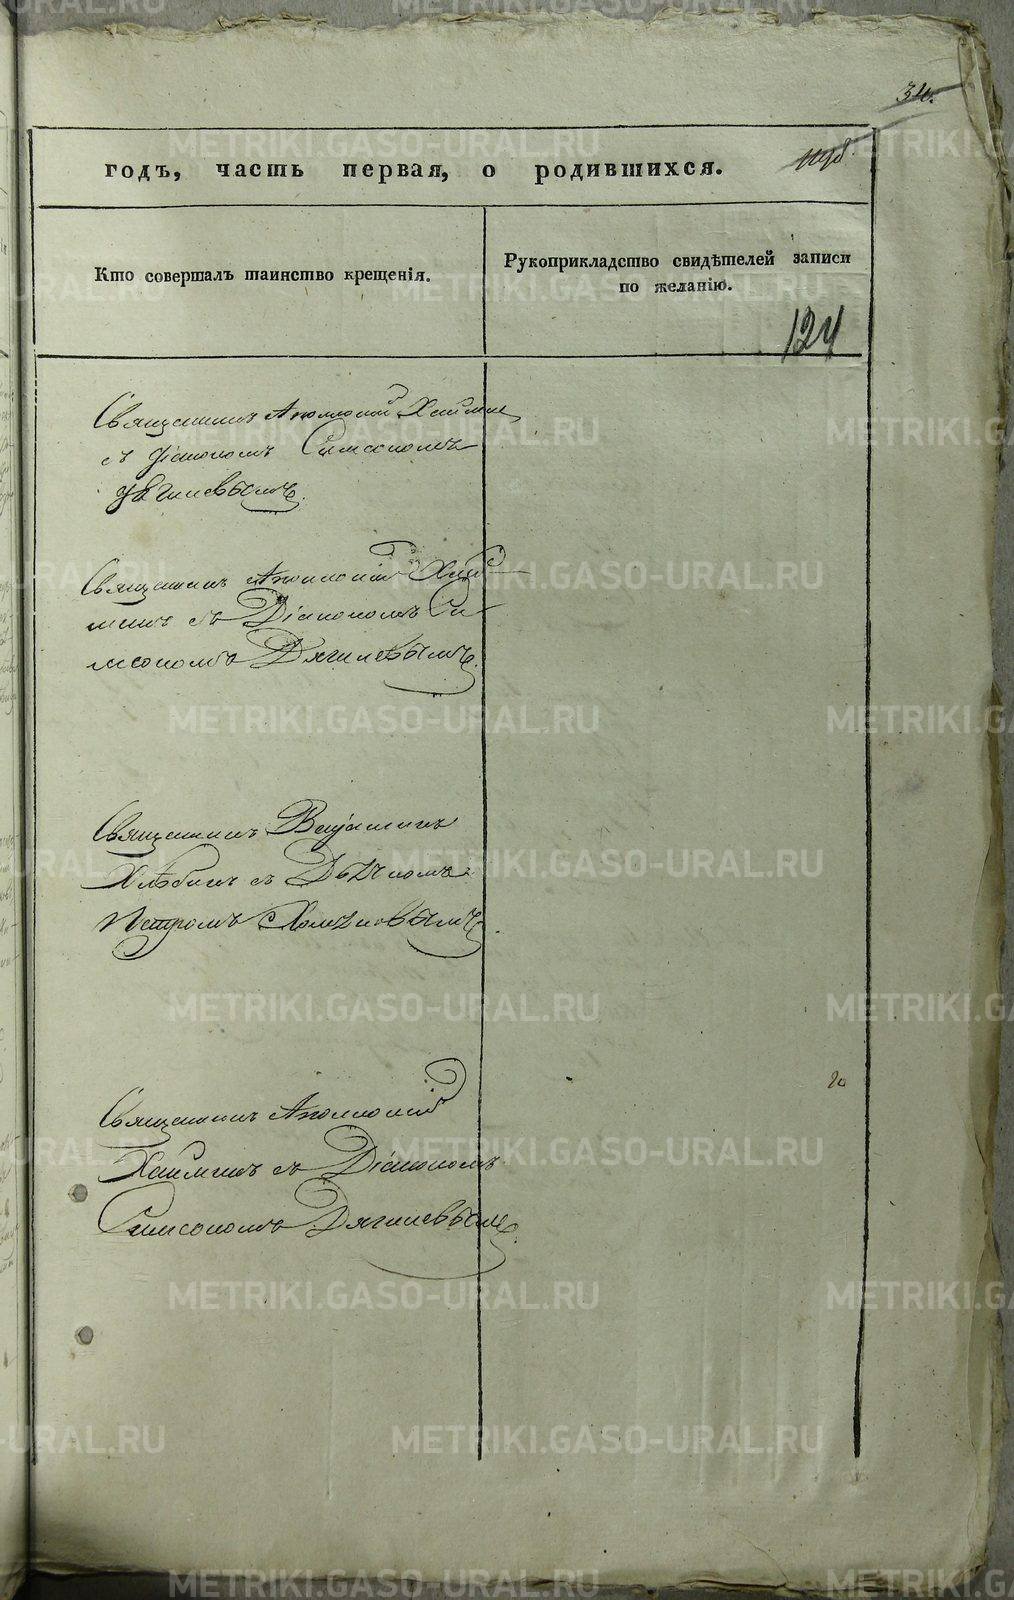 34.
годъ, часть первая, о родившихся.
Кто совершалъ таинство крещенія.
Рукоприкладство свидѣтелей записи
по желанію.
124
Священникъ Аполлоній
съ Діакономъ Симсономъ
Дягилевымъ.
Священникъ Аполлоній
съ Діакономъ Си-
мсономъ Дягилевымъ.
Священникъ Веніаминъ
Хлѣбинъ съ Дьячкомъ
Петромъ
20
Священникъ Аполлоній
съ Діакономъ
Симсономъ Дягилевымъ.
METRIKI.GASO-URAL.RU